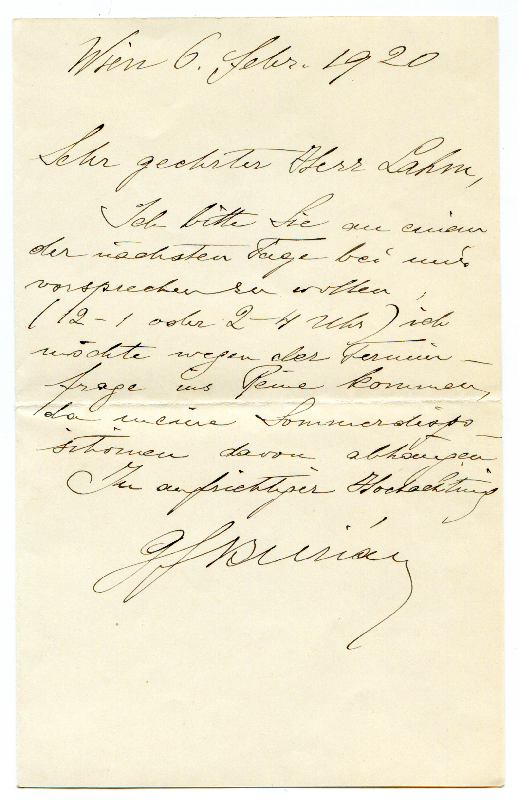 Wien 6. Febr. 1920
Sehr geehrter Herr Lahm,
Ich bitte Sie an einem
der nächsten Tage bei mir
vorsprechen zu wollen,
(12-1 oder 2-4 Uhr) ich
möchte wegen der Termin-
frage ins Reine kommen,
da meine Sommerdispo-
sitionen davon abhängen
In aufrichtiger Hochachtung
Burián